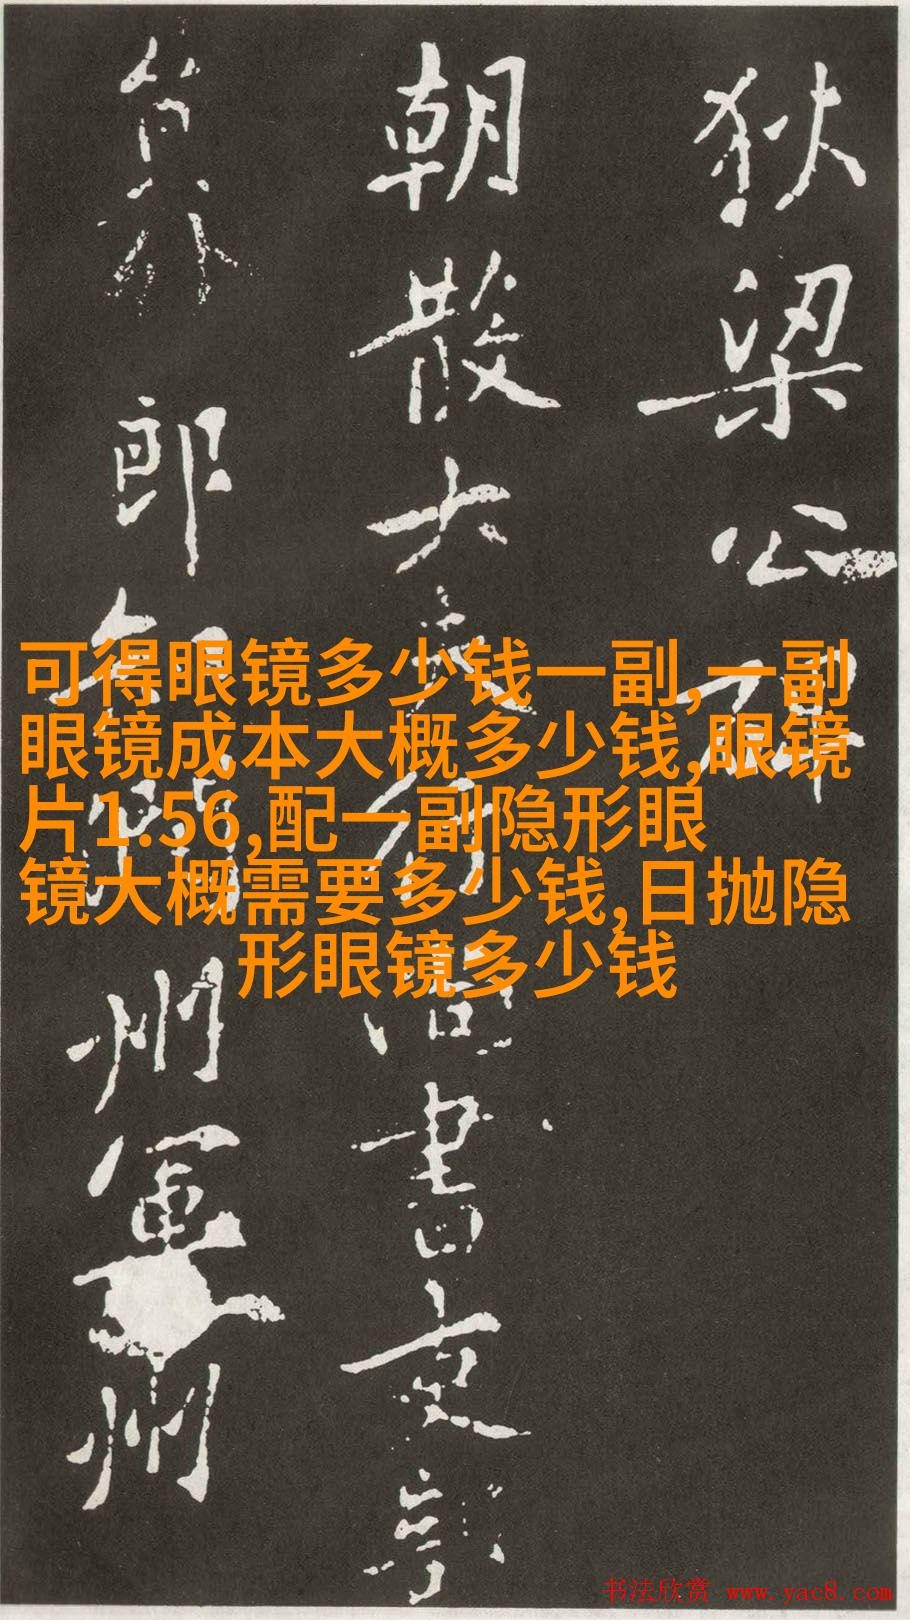 狄梁公碑
朝散大夫行尚書吏部
員外郎知潤州軍州
可得眼镜多少钱一副,一副
眼镜成本大概多少钱,眼镜
片1.56,配一副隐形眼
镜大概需要多少钱,日抛隐
形眼镜多少钱
书法欣赏 www.yac8.com